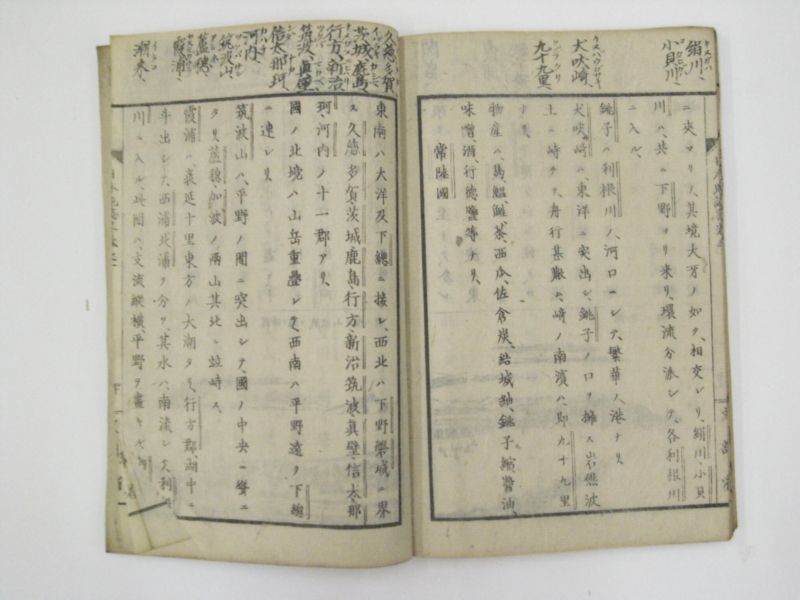 絹川、
小貝川、
犬吠崎、
九十九里、
ニ夾マリテ、其境犬牙ノ如ク、相交レリ、絹川小貝
川ハ、共ニ下野ヨリ來リ、環流分派シテ、各利根川
ニ入ル、
銚子ハ利根川ノ河口ニシテ、繁華ノ港ナリ
犬吠崎ハ、東洋ニ突出シ、銚子ノ口ヲ擁ス岩礁波
上ニ峙チテ、舟行甚難シ、崎ノ南濱ハ、即九十九里
ナリ、
物産ハ、馬、鰮、鹹、茶、西瓜、佐倉炭、結城紬、銚子縮醬油、
味醂酒、行德鹽等ナリ、
常陸國
久慈多賀
茨城、鹿島
行方、新治
筑波、真壁
信太那珂
河内、
筑波山、
蘆穗、
霞浦、
潮來、
東南ハ大洋及下總ニ接シ、西北ハ下野磐城ニ界
ス、久慈多賀茨城鹿島、行方、新治筑波、真壁、信太、那
珂、河内ノ十一郡アリ、
國ノ北境ハ山岳重疊シテ、西南ハ平野遠ク下總
ニ連レリ、
筑波山ハ、平野ノ間ニ突出シテ、國ノ中央ニ聳ニ
タリ、蘆穗、加波ノ兩山其北ニ竝峙ス、
霞浦ハ、袤延十里東方ノ大湖タリ、行方郡、湖中ニ
斗出シテ、西浦北浦ヲ分ツ、其水ハ、南流シテ、利根
川ニ入ル、此間ハ、支流縱横、平野ヲ畫キ